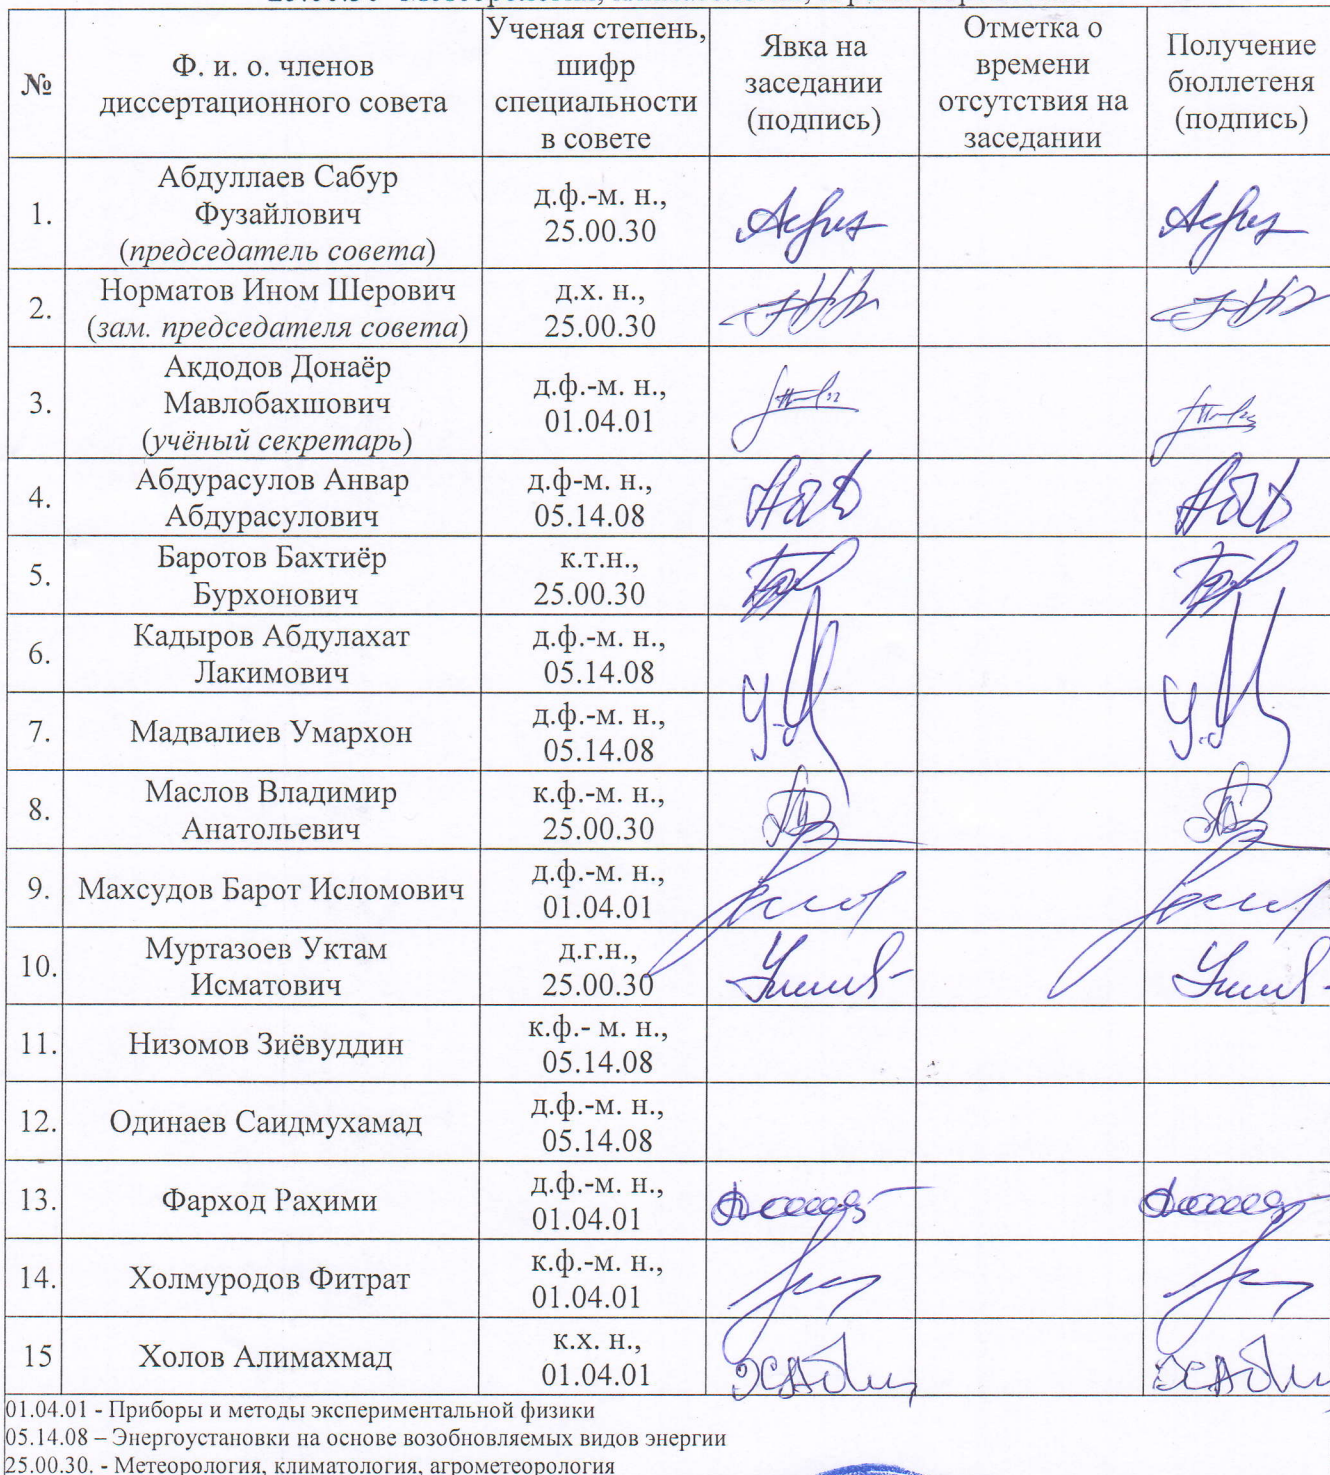 №
Ф. и. о. членов
диссертационного совета
Ученая степень,
шифр
специальности
в совете
Явка на
заседании
(подпись)
Отметка о
времени
отсутствия на
заседании
Получение
бюллетеня
(подпись)
1.
Абдуллаев Сабур
Фузайлович
(председатель совета)
д.ф.-м. н.,
25.00.30
2.
Норматов Ином Шерович
(зам. председателя совета)
д.х. н.,
25.00.30
3.
Акдодов Донаёр
Мавлобахшович
(учёный секретарь)
д.ф.-м. н.,
01.04.01
4.
Абдурасулов Анвар
Абдурасулович
д.ф-м. н.,
05.14.08
5.
Баротов Бахтиёр
Бурхонович
к.т.н.,
25.00.30
6.
Кадыров Абдулахат
Лакимович
д.ф.-м. н.,
05.14.08
7.
Мадвалиев Умархон
д.ф.-м. н.,
05.14.08
8.
Маслов Владимир
Анатольевич
к.ф.-м. н.,
25.00.30
9.
Махсудов Барот Исломович
д.ф.-м. н.,
01.04.01
10.
Муртазоев Уктам
Исматович
д.г.н.,
25.00.30
11.
Низомов Зиёвуддин
к.ф.- м. н.,
05.14.08
12.
Одинаев Саидмухамад
д.ф.-м. н.,
05.14.08
13.
Фарход Раҳими
д.ф.-м. н.,
01.04.01
14.
Холмуродов Фитрат
к.ф.-м. н.,
01.04.01
15
Холов Алимахмад
к.х. н.,
01.04.01
01.04.01 - Приборы и методы экспериментальной физики
05.14.08 – Энергоустановки на основе возобновляемых видов энергии
25.00.30. - Метеорология, климатология, агрометеорология